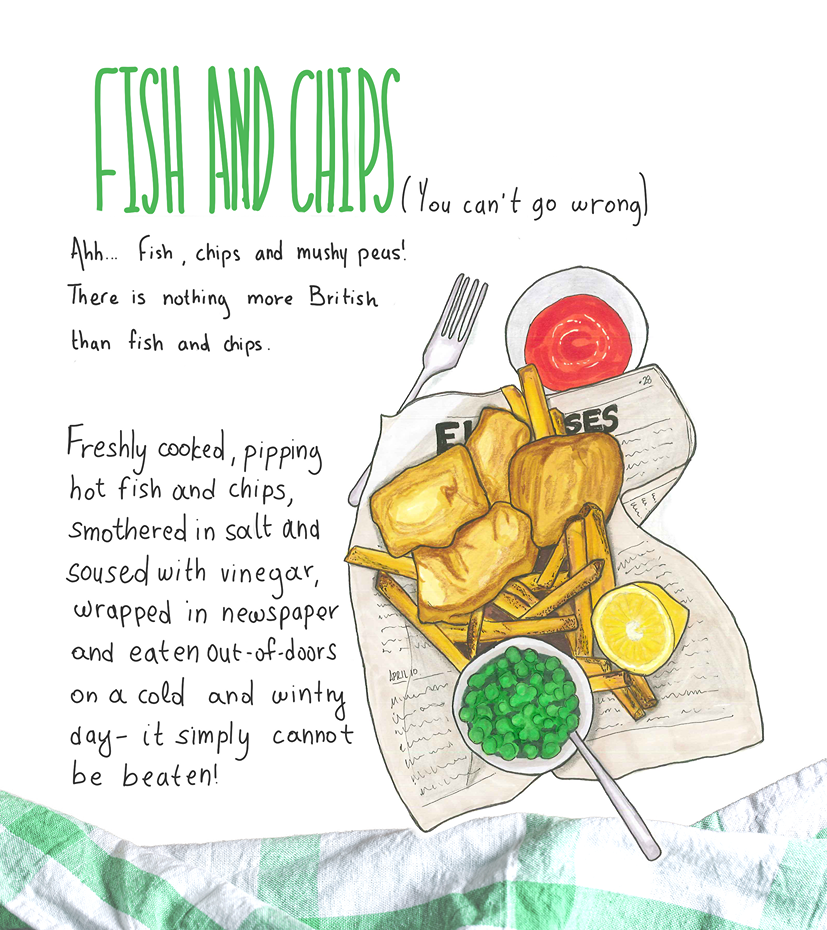 FISH AND CHIPS (You can't go wrong)
Ahh... Fish, chips and mushy peas!
There is nothing more British
than fish and chips.
Freshly cooked, pipping
hot fish and chips,
smothered in salt and
soused with vinegar,
wrapped in newspaper
and eaten out-of-doors
on a cold and wintry
day- it simply cannot
be beaten!
•28
SES
APRIL 10